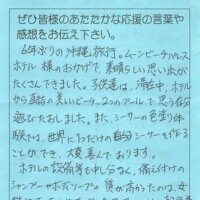 ぜひ皆様のあたたかな応援の言葉や
感想をお伝え下さい。
6年ぶりの沖縄旅行。ムーンビーチパレス
ホテル 様のおかげで、素晴らしい思い出が
たくさんできました。子供達は、滞在中、ホテル
から直結の美しいビーチ、2つのプールで 思う存分
遊びたおしました。また、シーサーの色塗り体
験では、世界に1つだけの自分シーサーを作る
ことができ、大変喜んでおります。
ホテルの設備等も申し分なく、備え付けの
シャンプーやボディソープの 質が高かったのは、女